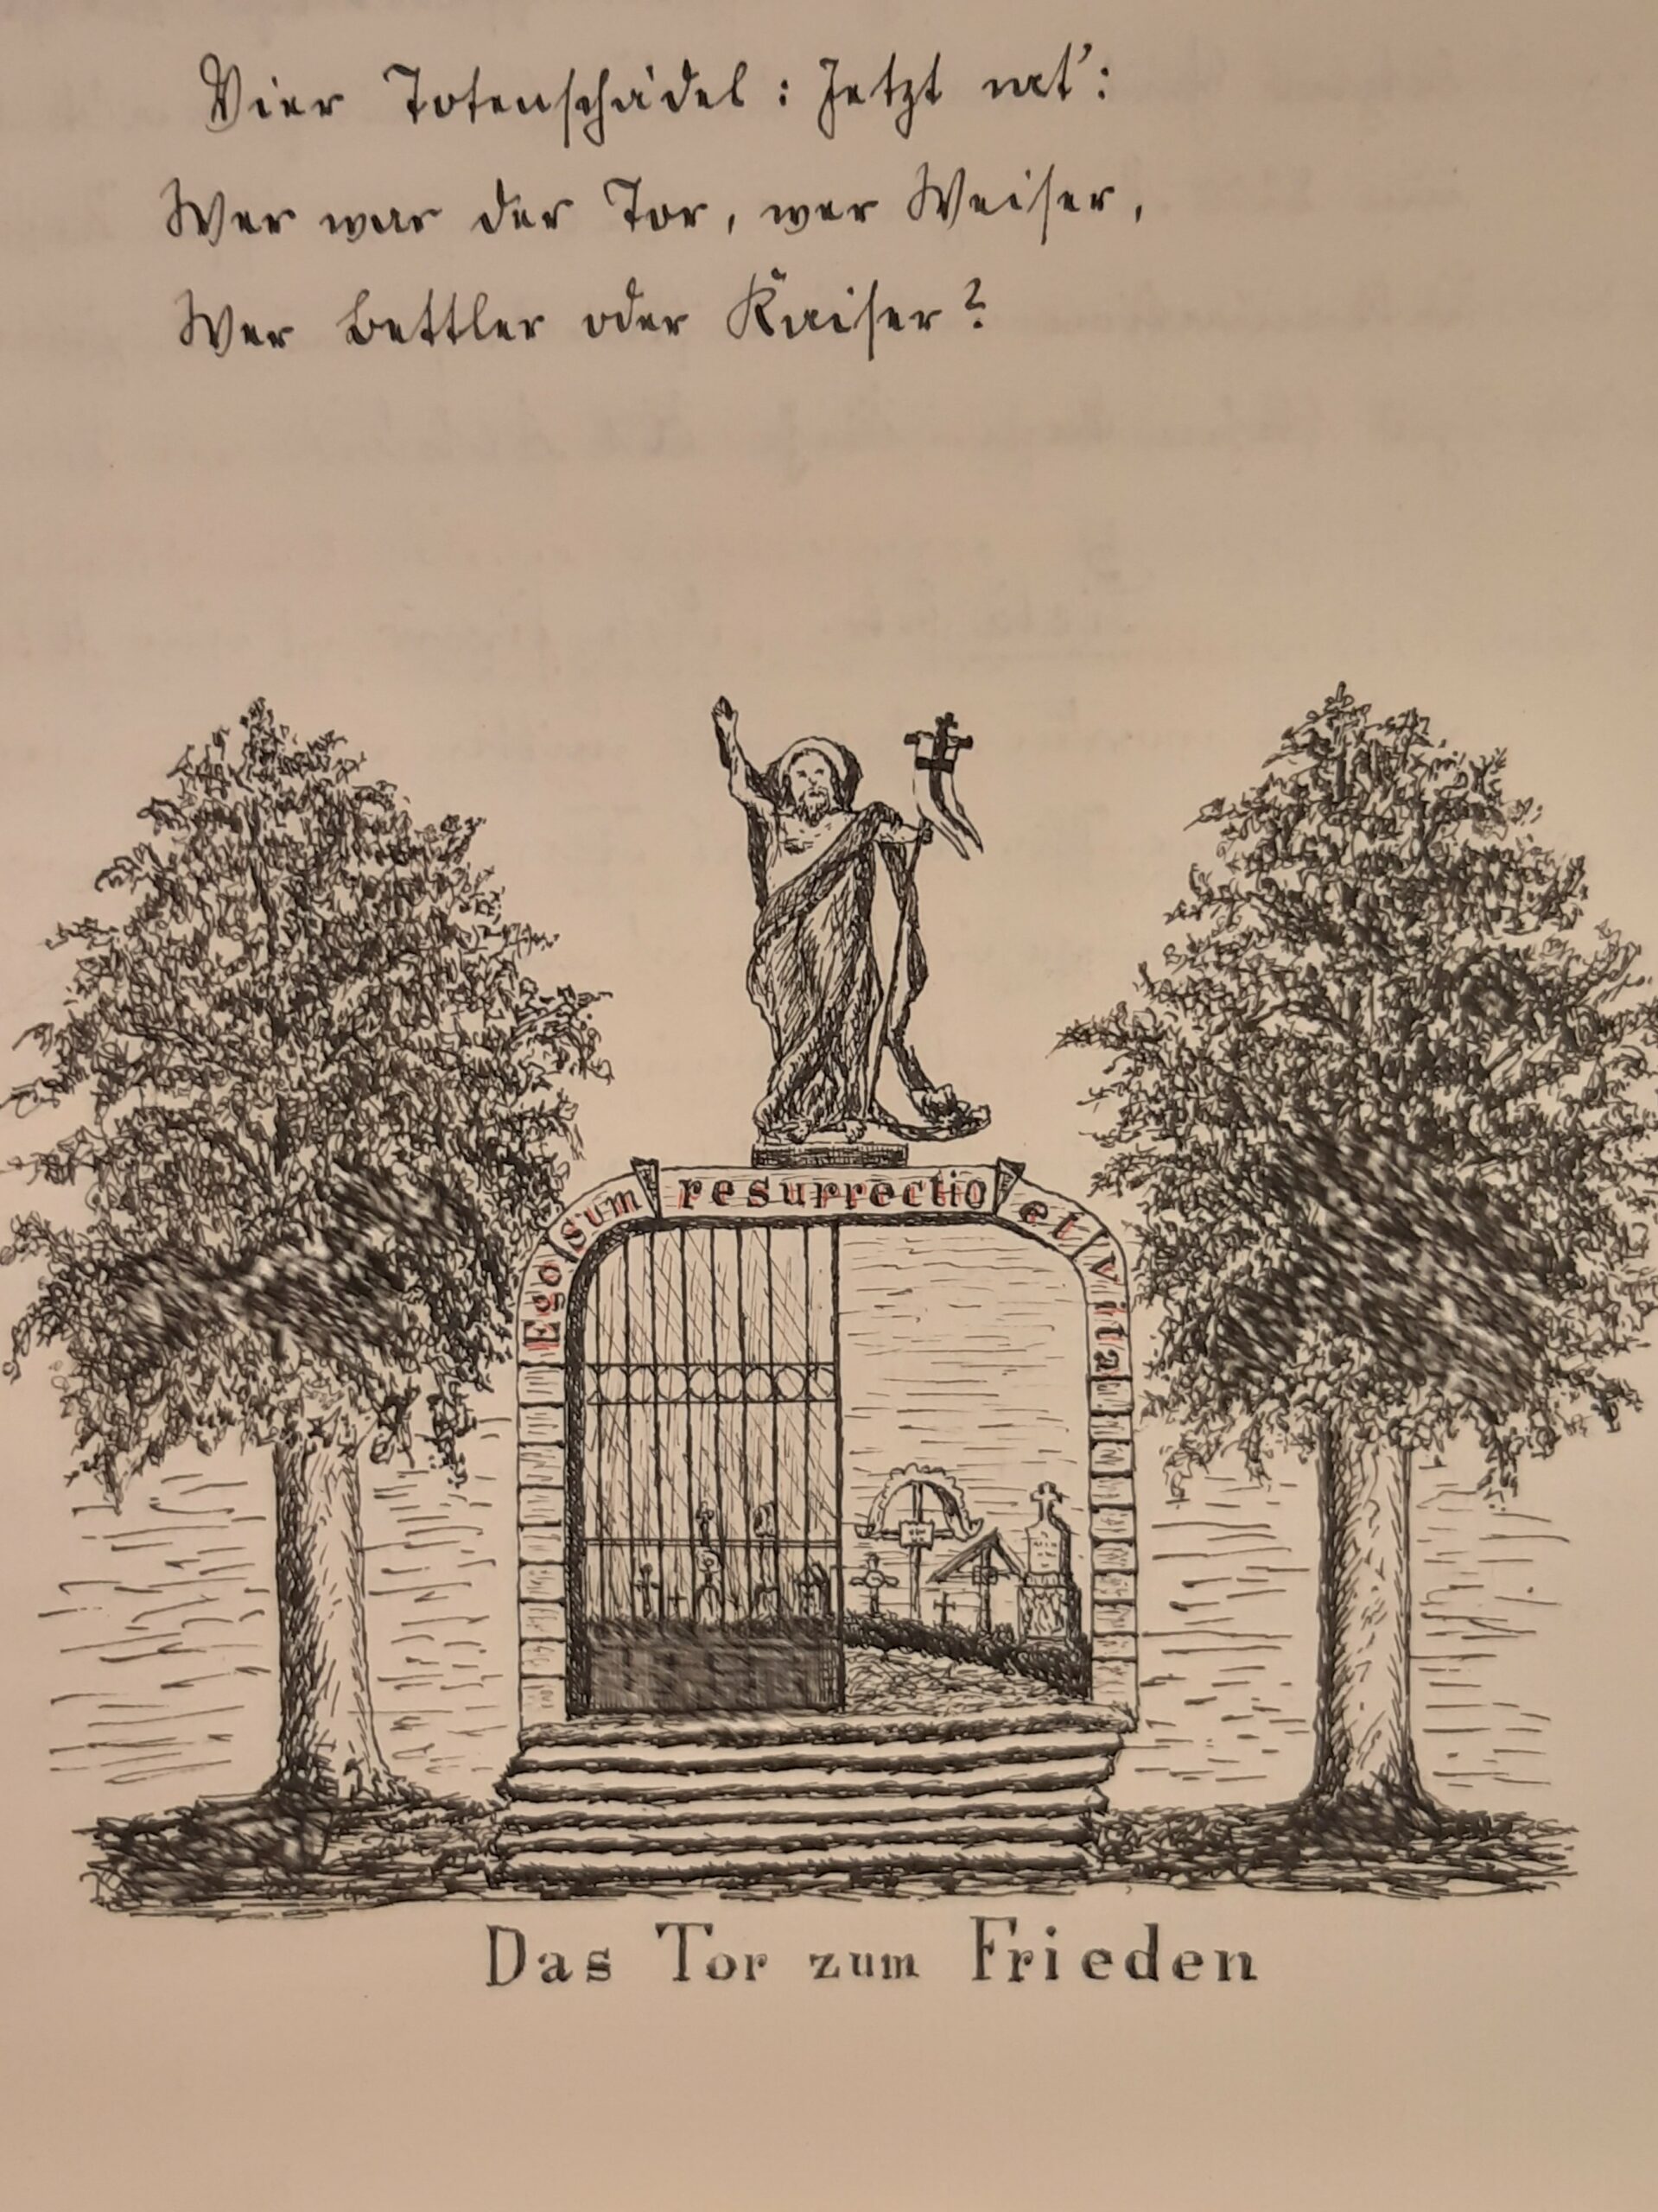 Vier Totenschädel: Jetzt rat':
Wer war der Tor, wer Weiser,
Wer Bettler oder Kaiser?
Ego sum resurrectio et vita
Das Tor zum Frieden